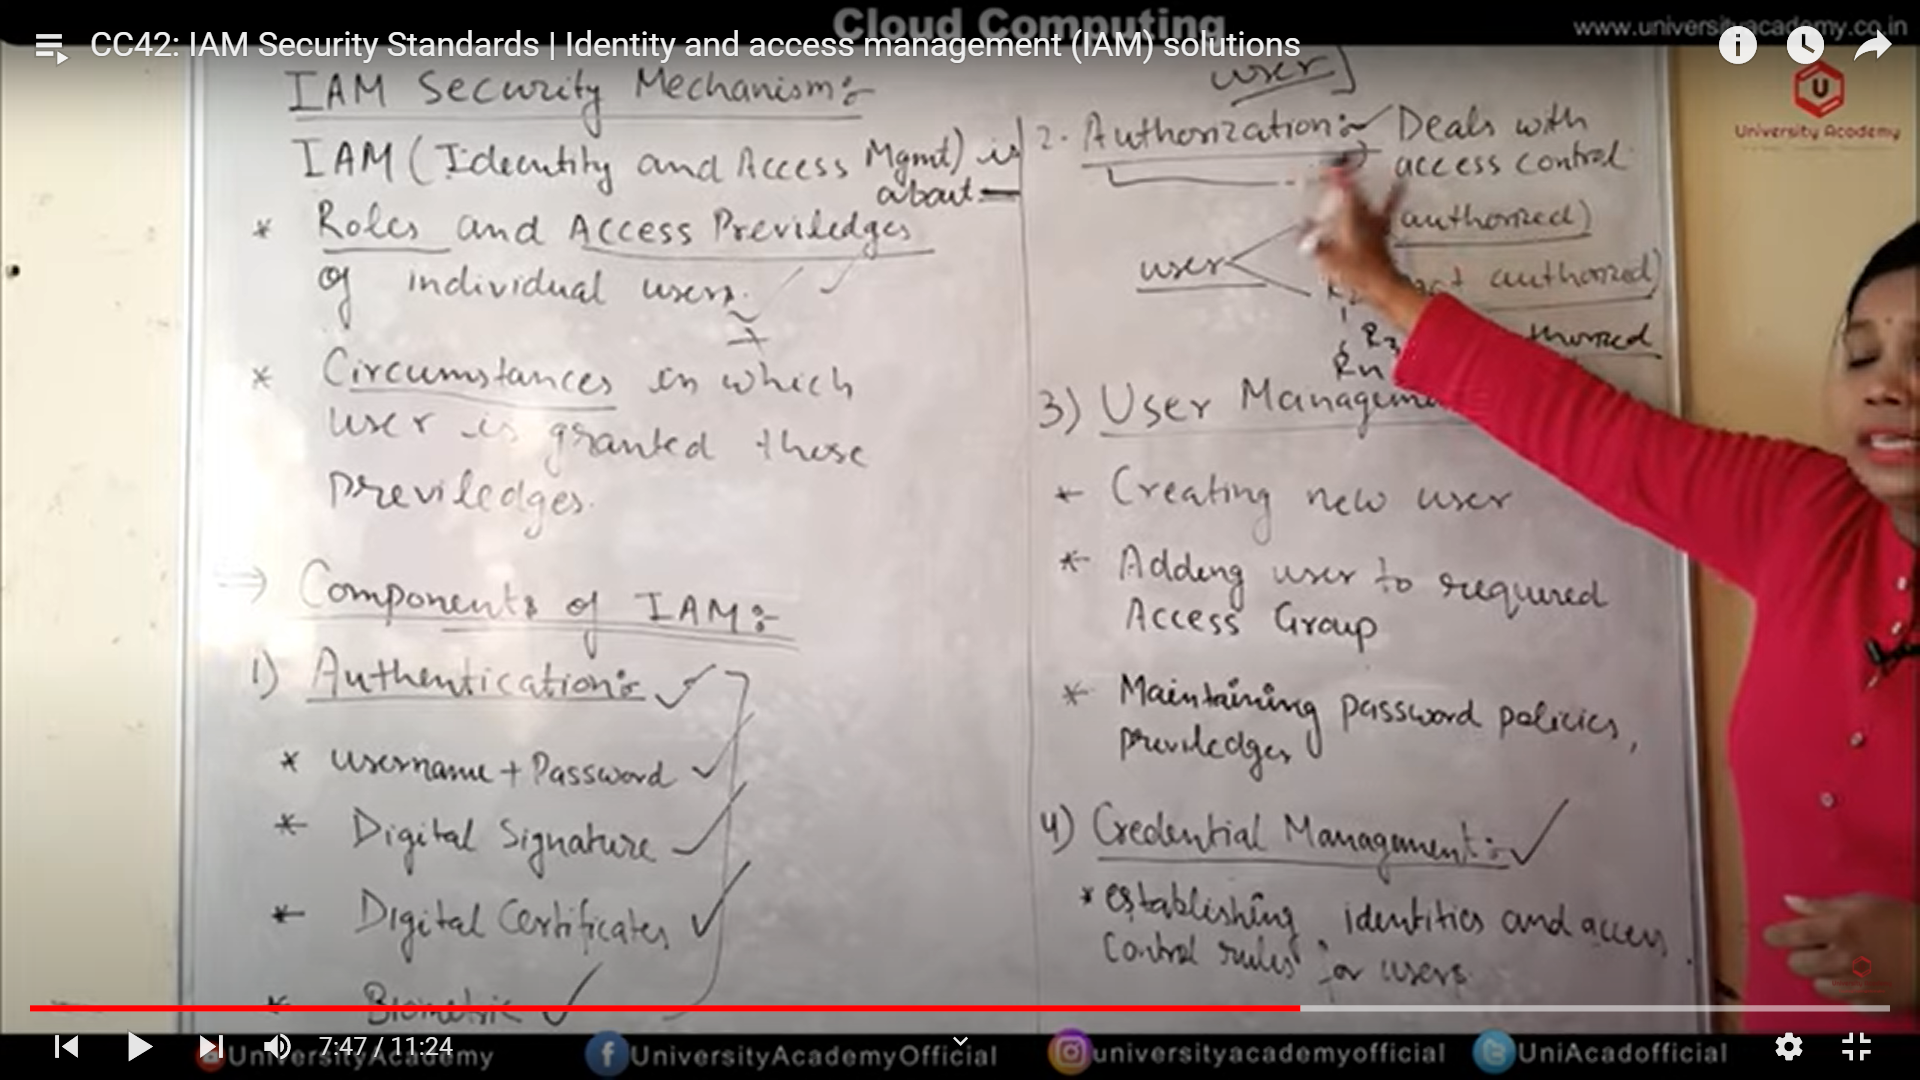 Cloud Computing
www.universityacademy.co.in
CC42: IAM Security Standards | Identity and access management (IAM) solutions
U
University Academy
IAM Security Mechanism:-
IAM (Identity and Access Mgmt) is
about -
* Roles and Access Previledges
of individual users.
* Circumstances in which
user is granted those
previledges.
⇒ Components of IAM:-
1) Authentication:- ✓
* Username + Password ✓
* Digital Signature ✓
* Digital Certificates ✓
* Biometric ✓
user]
2. Authorization:- Deals with
access control
authorized)
user
authorized)
R3
Rn
3) User Managem
* Creating new user
* Adding user to required
Access Group
* Maintaining password policies,
previledges
4) Credential Management:- ✓
* establishing identities and access
control rules for users.
7:47 / 11:24
UniversityAcademy
UniversityAcademyOfficial
universityacademyofficial
UniAcadofficial